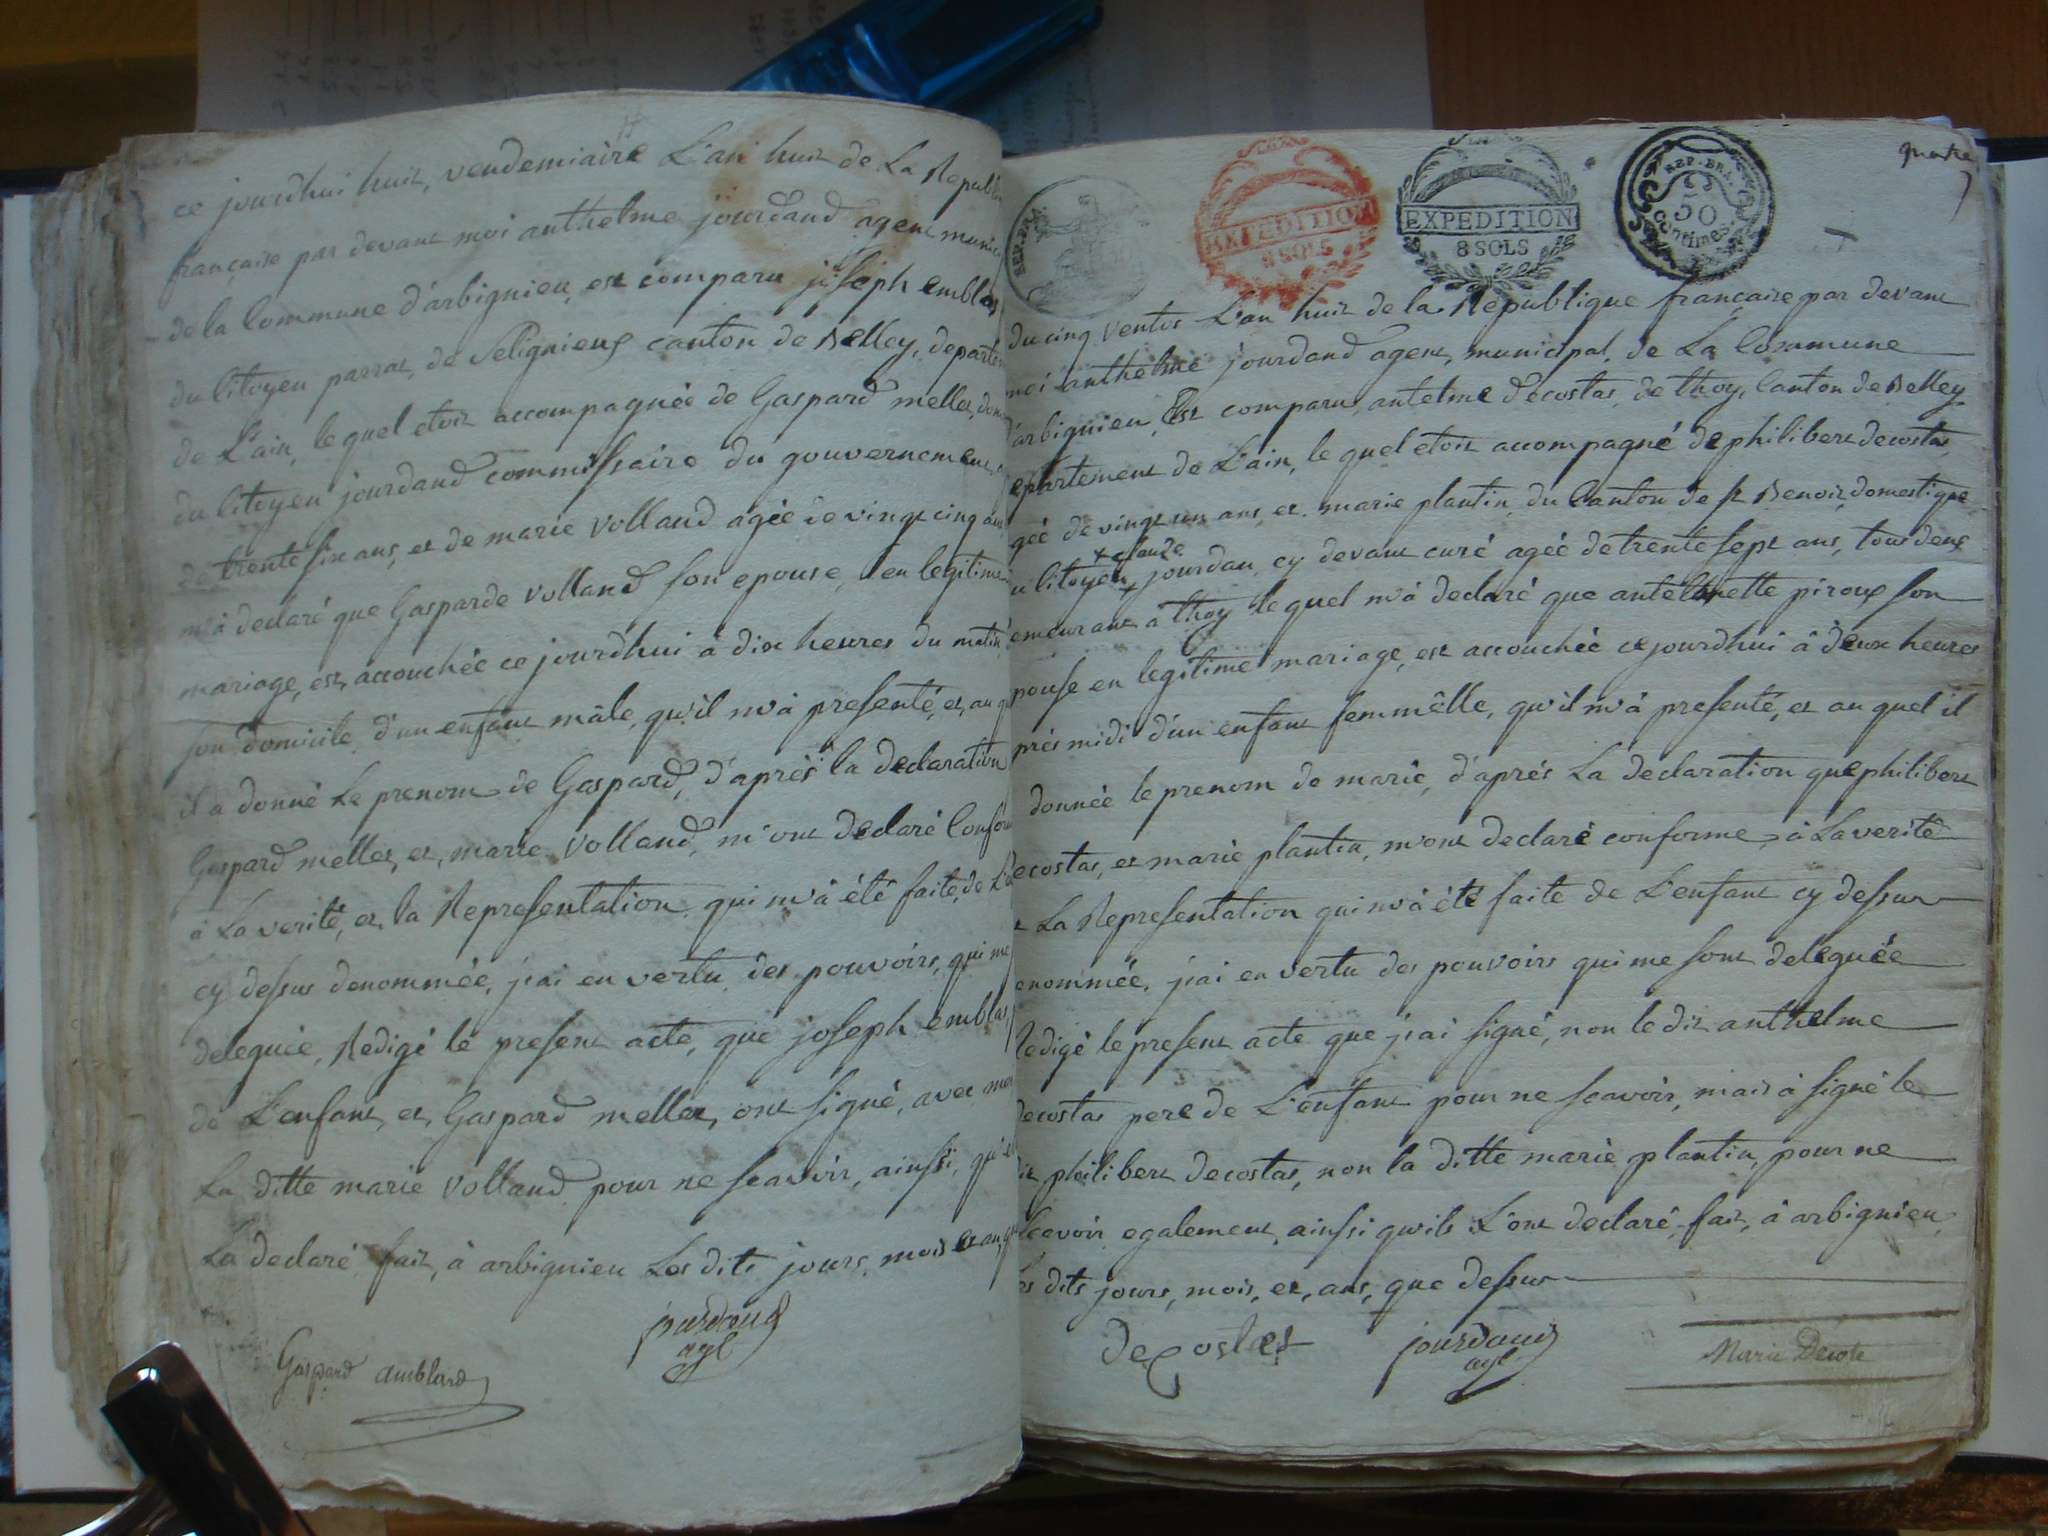 ce jourd'hui huit, vendemiaire L'an huit de La Republi
française par devant moi anthelme jourdand agent munic
de la Commune d'arbignieu, est comparu joseph emblas
du Citoyen parrat, de Selignieux canton de Belley, departem
de L'ain, le quel etoit accompagnée de Gaspard mellet, dom
du Citoyen jourdand commissaire du gouvernement
de trente six ans, et de marie Volland agée de vingt cinq ans
m'à declaré que Gasparde Volland son epouse, en legitime
mariage, est, accouchée ce jourd'hui à dix heures du matin
son domicile, d'un enfant mâle, qu'il m'à presenté, et, au q
il a donné Le prenom de Gaspard, d'après la declaration
Gaspard mellet, et, marie Volland, m'ont declaré Confor
à La verité, et, la Representation qui m'à été faite, de L'e
cy dessus denommée, j'ai en vertu des pouvoirs, qui me
deleguée, Redigé le present acte, que joseph emblas, p
de L'enfant, et, Gaspard mellet, ont signé, avec moi
La ditte marie Volland pour ne sçavoir, ainssi, qu'el
La declaré fait, à arbignieu Les dits jours, mois et an, qu
jourdand
agt
Gaspard amblard
quatre
REP. FRA.
EXPEDITION
8 SOLS
EXPEDITION
8 SOLS
REP. FRA.
50
centimes
du cinq ventos L'an huit de la Republique française par devant
moi anthelme jourdand agent, municipal, de La Commune
d'arbignieu, Est comparu, antelme decostas, de thoy, Canton de Belley
epartement de L'ain, le quel etoit accompagné de philibert decostas,
gée de vingt un ans, et marie plantin, du Canton de st Benoit, domestique
u Citoyen x claude jourdan, cy devant curé agée de trente sept ans, tous deux
emeurant à thoy le quel m'à declaré que antelmette piroux son
pouse en legitime mariage, est accouchée ce jourd'hui à deux heures
près midi d'un enfant femmêlle, qu'il m'à presenté, et au quel il
donnée le prenom de marie, d'aprés La declaration que philibert
ecostas, et marie plantin, m'ont declaré conforme, à La verité
t La Representation qui m'à été faite de L'enfant cy dessus
enommée, j'ai en vertu des pouvoirs qui me sont deleguée
Redigé le present acte que j'ai signé, non le dit anthelme
decostas pere de L'enfant pour ne sçavoir, mais à signé le
dit philibert decostas, non la ditte marie plantin, pour ne
scavoir egalement, ainssi qu'ils L'ont declaré, fait, à arbignieu,
Les dits jours, mois, et, ans, que dessus
decostas jourdand
agt
Marie Decote